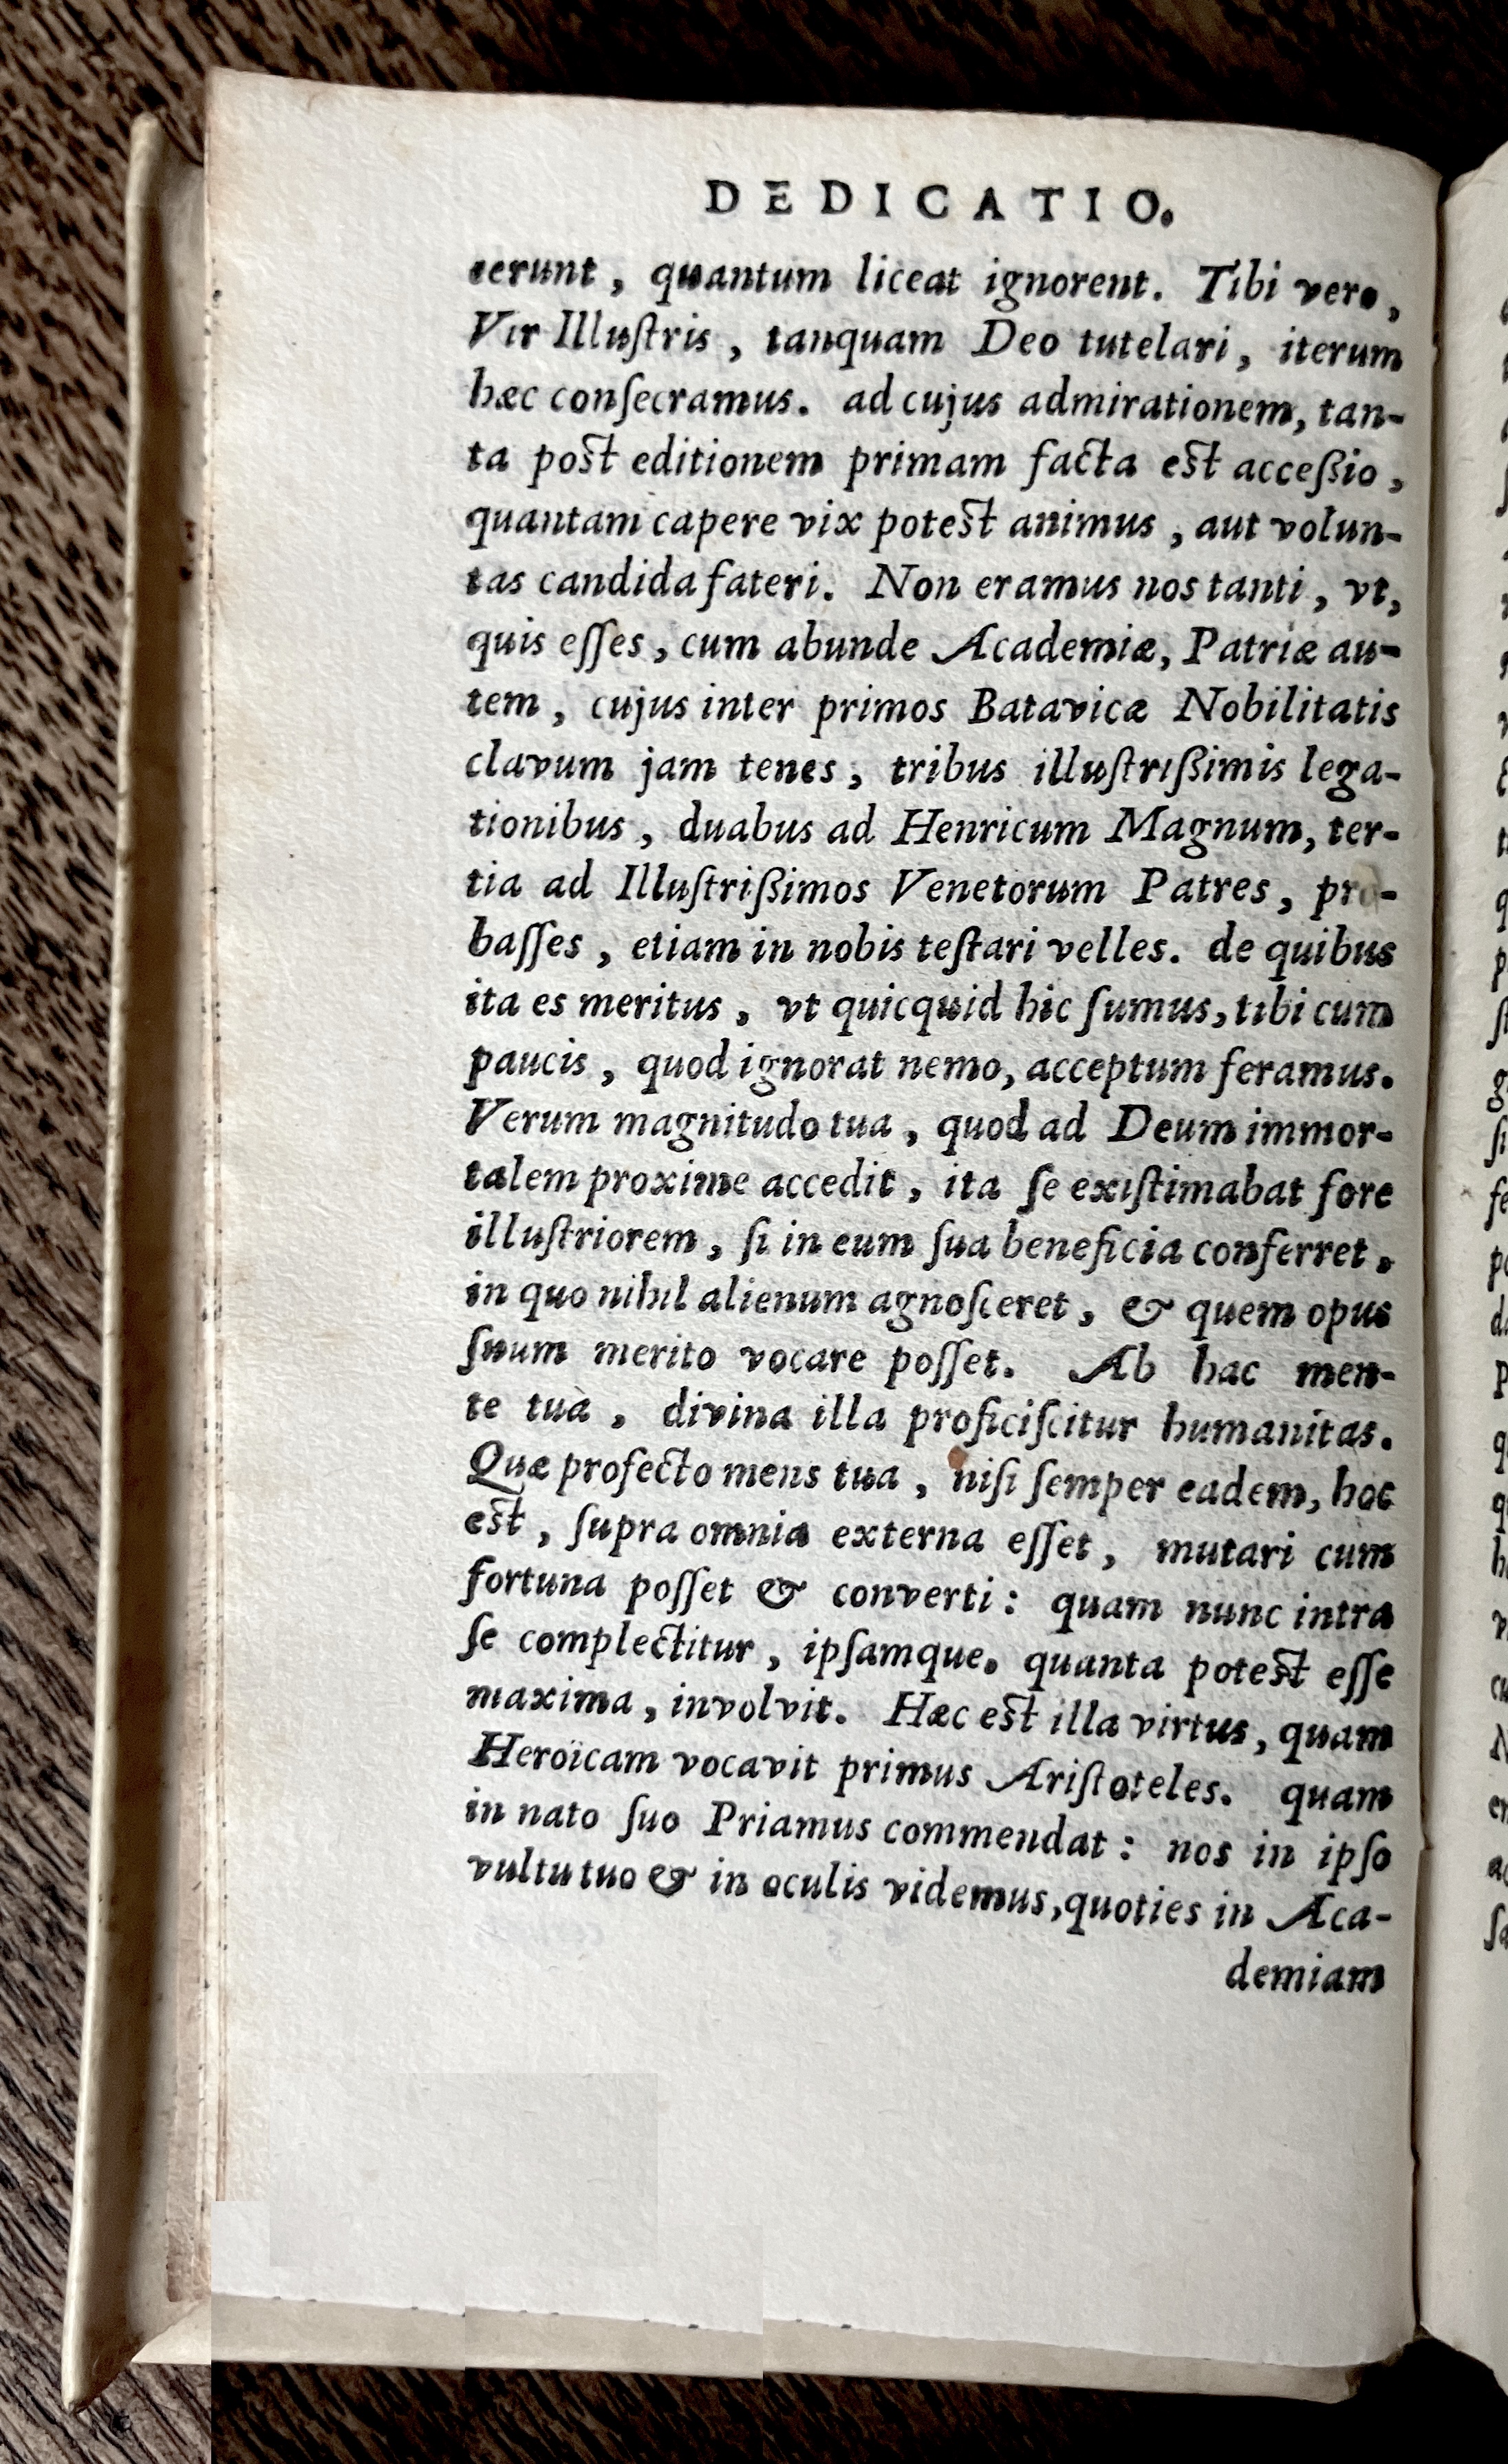 DEDICATIO.
cerunt, quantum liceat ignorent. Tibi vero,
Vir Illuſtris, tanquam Deo tutelari, iterum
hæc conſecramus. ad cujus admirationem, tan-
ta post editionem primam facta est acceßio,
quantam capere vix potest animus, aut volun-
tas candida fateri. Non eramus nos tanti, vt,
quis eſſes, cum abunde Academiæ, Patriæ au-
tem, cujus inter primos Batavicæ Nobilitatis
clavum jam tenes, tribus illuſtrißimis lega-
tionibus, duabus ad Henricum Magnum, ter-
tia ad Illuſtrißimos Venetorum Patres, pro-
baſſes, etiam in nobis teſtari velles. de quibus
ita es meritus, vt quicquid hic ſumus, tibi cum
paucis, quod ignorat nemo, acceptum feramus.
Verum magnitudo tua, quod ad Deum immor-
talem proxime accedit, ita ſe exiſtimabat fore
illuſtriorem, ſi in eum ſua beneficia conferret,
in quo nihil alienum agnoſceret, & quem opus
ſuum merito vocare poſſet. Ab hac men-
te tuà, divina illa proficiſcitur humanitas.
Quæ profecto mens tua, niſi ſemper eadem, hoc
est, ſupra omnia externa eſſet, mutari cum
fortuna poſſet & converti: quam nunc intra
ſe complectitur, ipſamque. quanta potest eſſe
maxima, involvit. Hæc est illa virtus, quam
Heroïcam vocavit primus Ariſtoteles. quam
in nato ſuo Priamus commendat: nos in ipſo
vultu tuo & in oculis videmus, quoties in Aca-
demiam